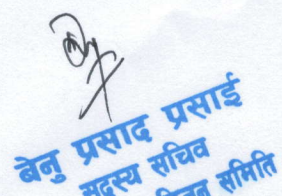 बेनु प्रसाद प्रसाई
सदस्य सचिव
समिति